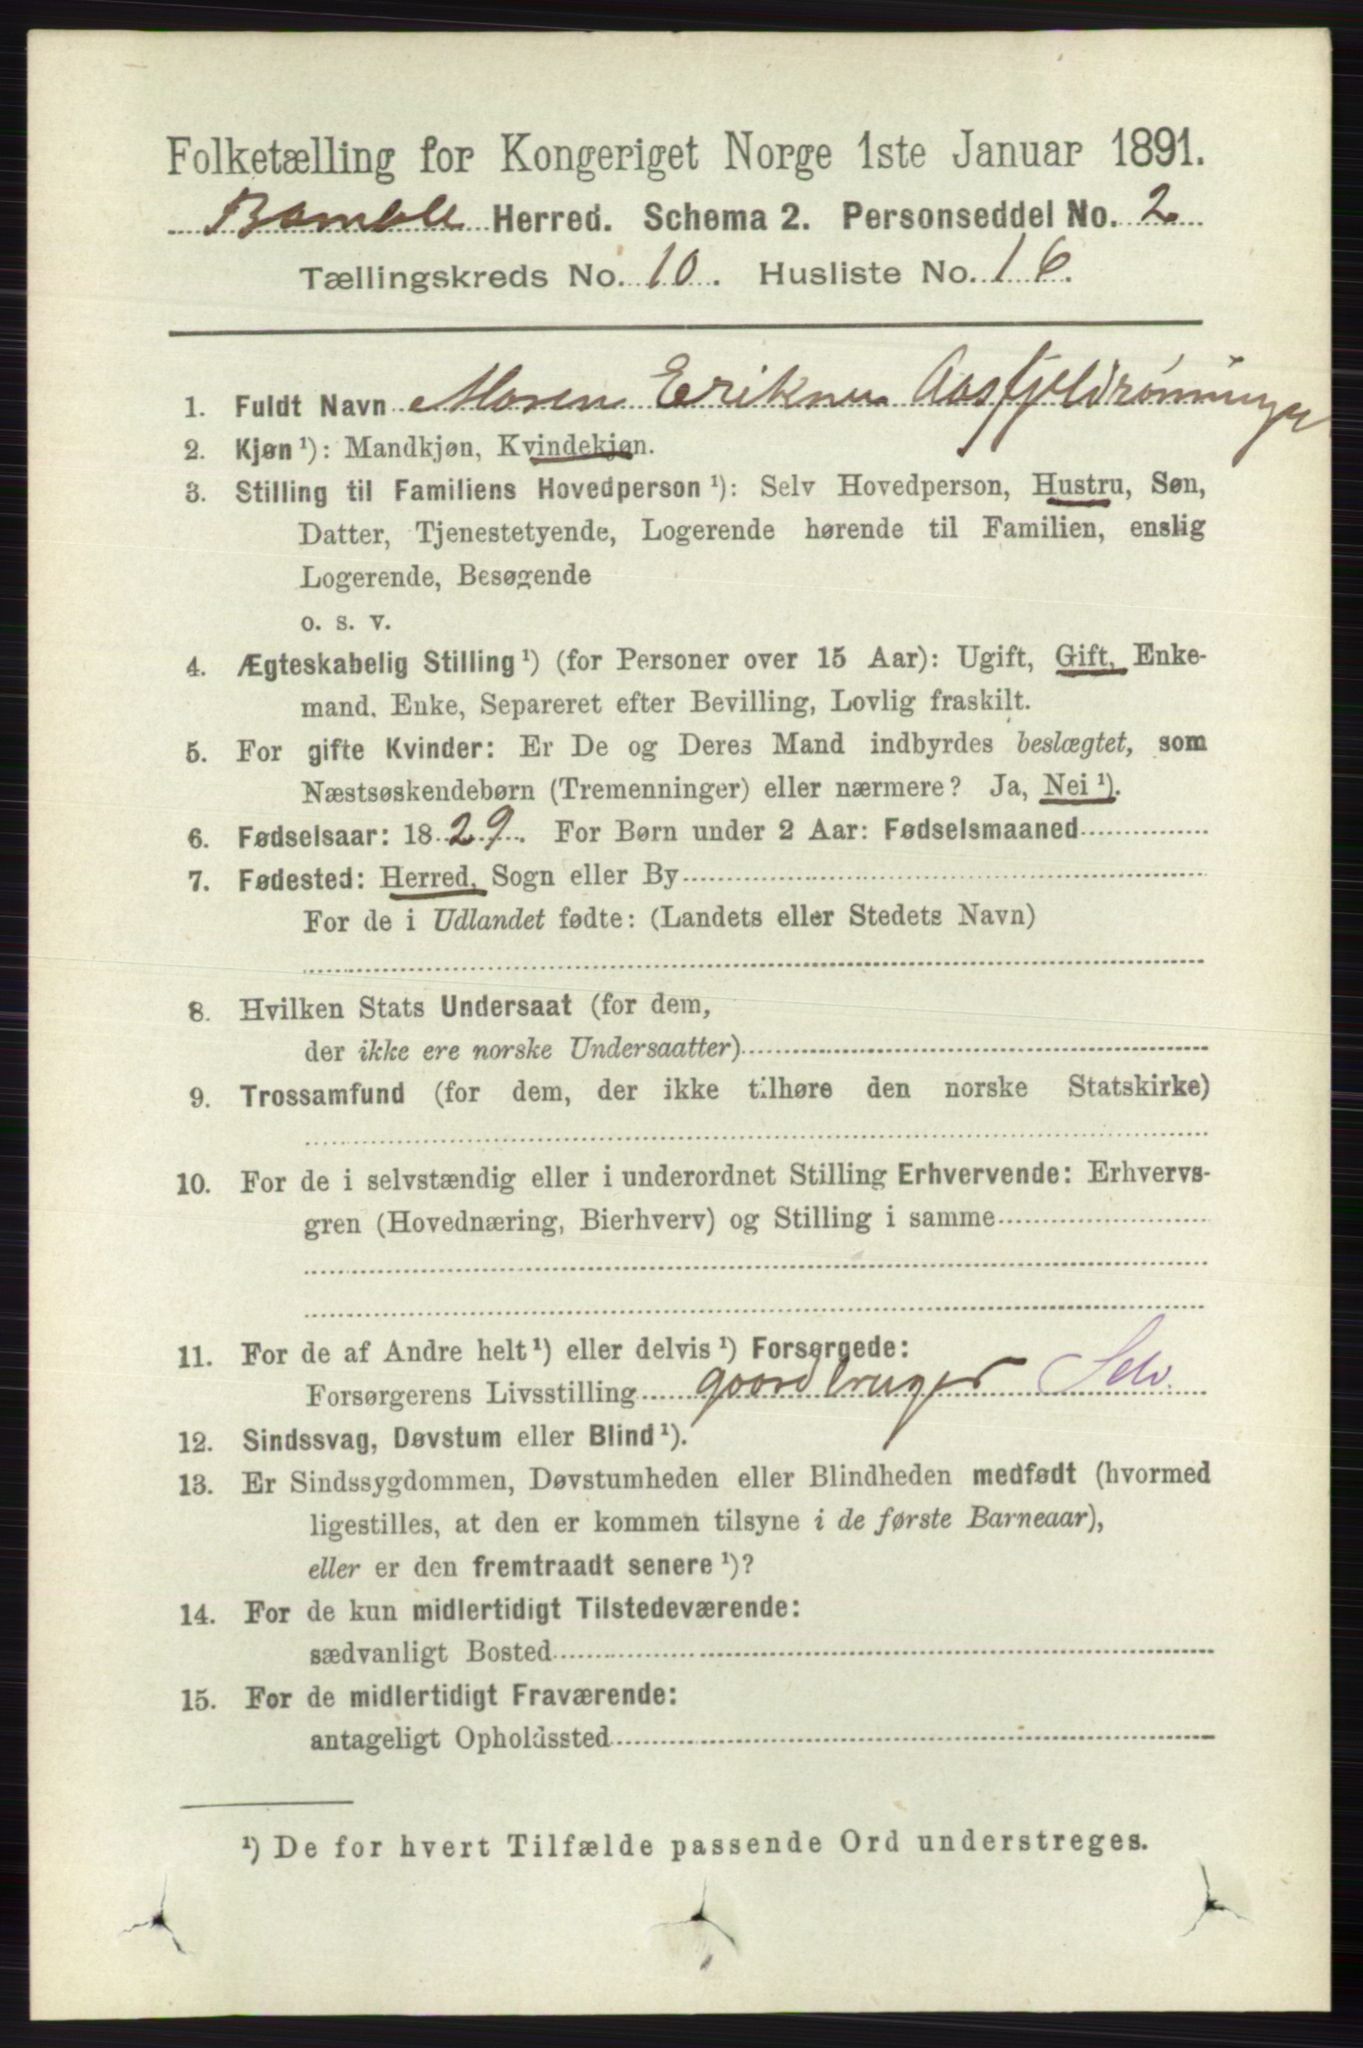 Folketælling for Kongeriget Norge 1ste Januar 1891.
Bamble Herred. Schema 2. Personseddel No. 2
Tællingskreds No. 10. Husliste No. 16.
1. Fuldt Navn Maren Aasfjeldrønninge
2. Kjøn¹): Mandkjøn, Kvindekjøn.
3. Stilling til Familiens Hovedperson¹): Selv Hovedperson, Hustru, Søn,
Datter, Tjenestetyende, Logerende hørende til Familien, enslig
Logerende, Besøgende
o. s. v.
4. Ægteskabelig Stilling¹) (for Personer over 15 Aar): Ugift, Gift, Enke-
mand, Enke, Separeret efter Bevilling, Lovlig fraskilt.
5. For gifte Kvinder: Er De og Deres Mand indbyrdes beslægtet, som
Næstsøskendebørn (Tremenninger) eller nærmere? Ja, Nei¹).
6. Fødselsaar: 1829. For Børn under 2 Aar: Fødselsmaaned
7. Fødested: Herred, Sogn eller By
For de i Udlandet fødte: (Landets eller Stedets Navn)
8. Hvilken Stats Undersaat (for dem,
der ikke ere norske Undersaatter)
9. Trossamfund (for dem, der ikke tilhøre den norske Statskirke)
10. For de i selvstændig eller i underordnet Stilling Erhvervende: Erhvervs-
gren (Hovednæring, Bierhverv) og Stilling i samme
11. For de af Andre helt¹) eller delvis¹) Forsørgede:
Forsørgerens Livsstilling gaardbruger Selv.
12. Sindssvag, Døvstum eller Blind¹).
13. Er Sindssygdommen, Døvstumheden eller Blindheden medfødt (hvormed
ligestilles, at den er kommen tilsyne i de første Barneaar),
eller er den fremtraadt senere¹)?
14. For de kun midlertidigt Tilstedeværende:
sædvanligt Bosted
15. For de midlertidigt Fraværende:
antageligt Opholdssted
¹) De for hvert Tilfælde passende Ord understreges.